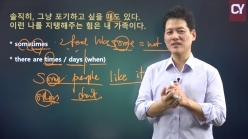 CY
솔직히, 그냥 포기하고 싶을 때도 있다.
이런 나를 지탱해주는 힘은 내 가족이다.
* sometimes I feel like some = not
* there are times / days (when)
Some people like it
others don't